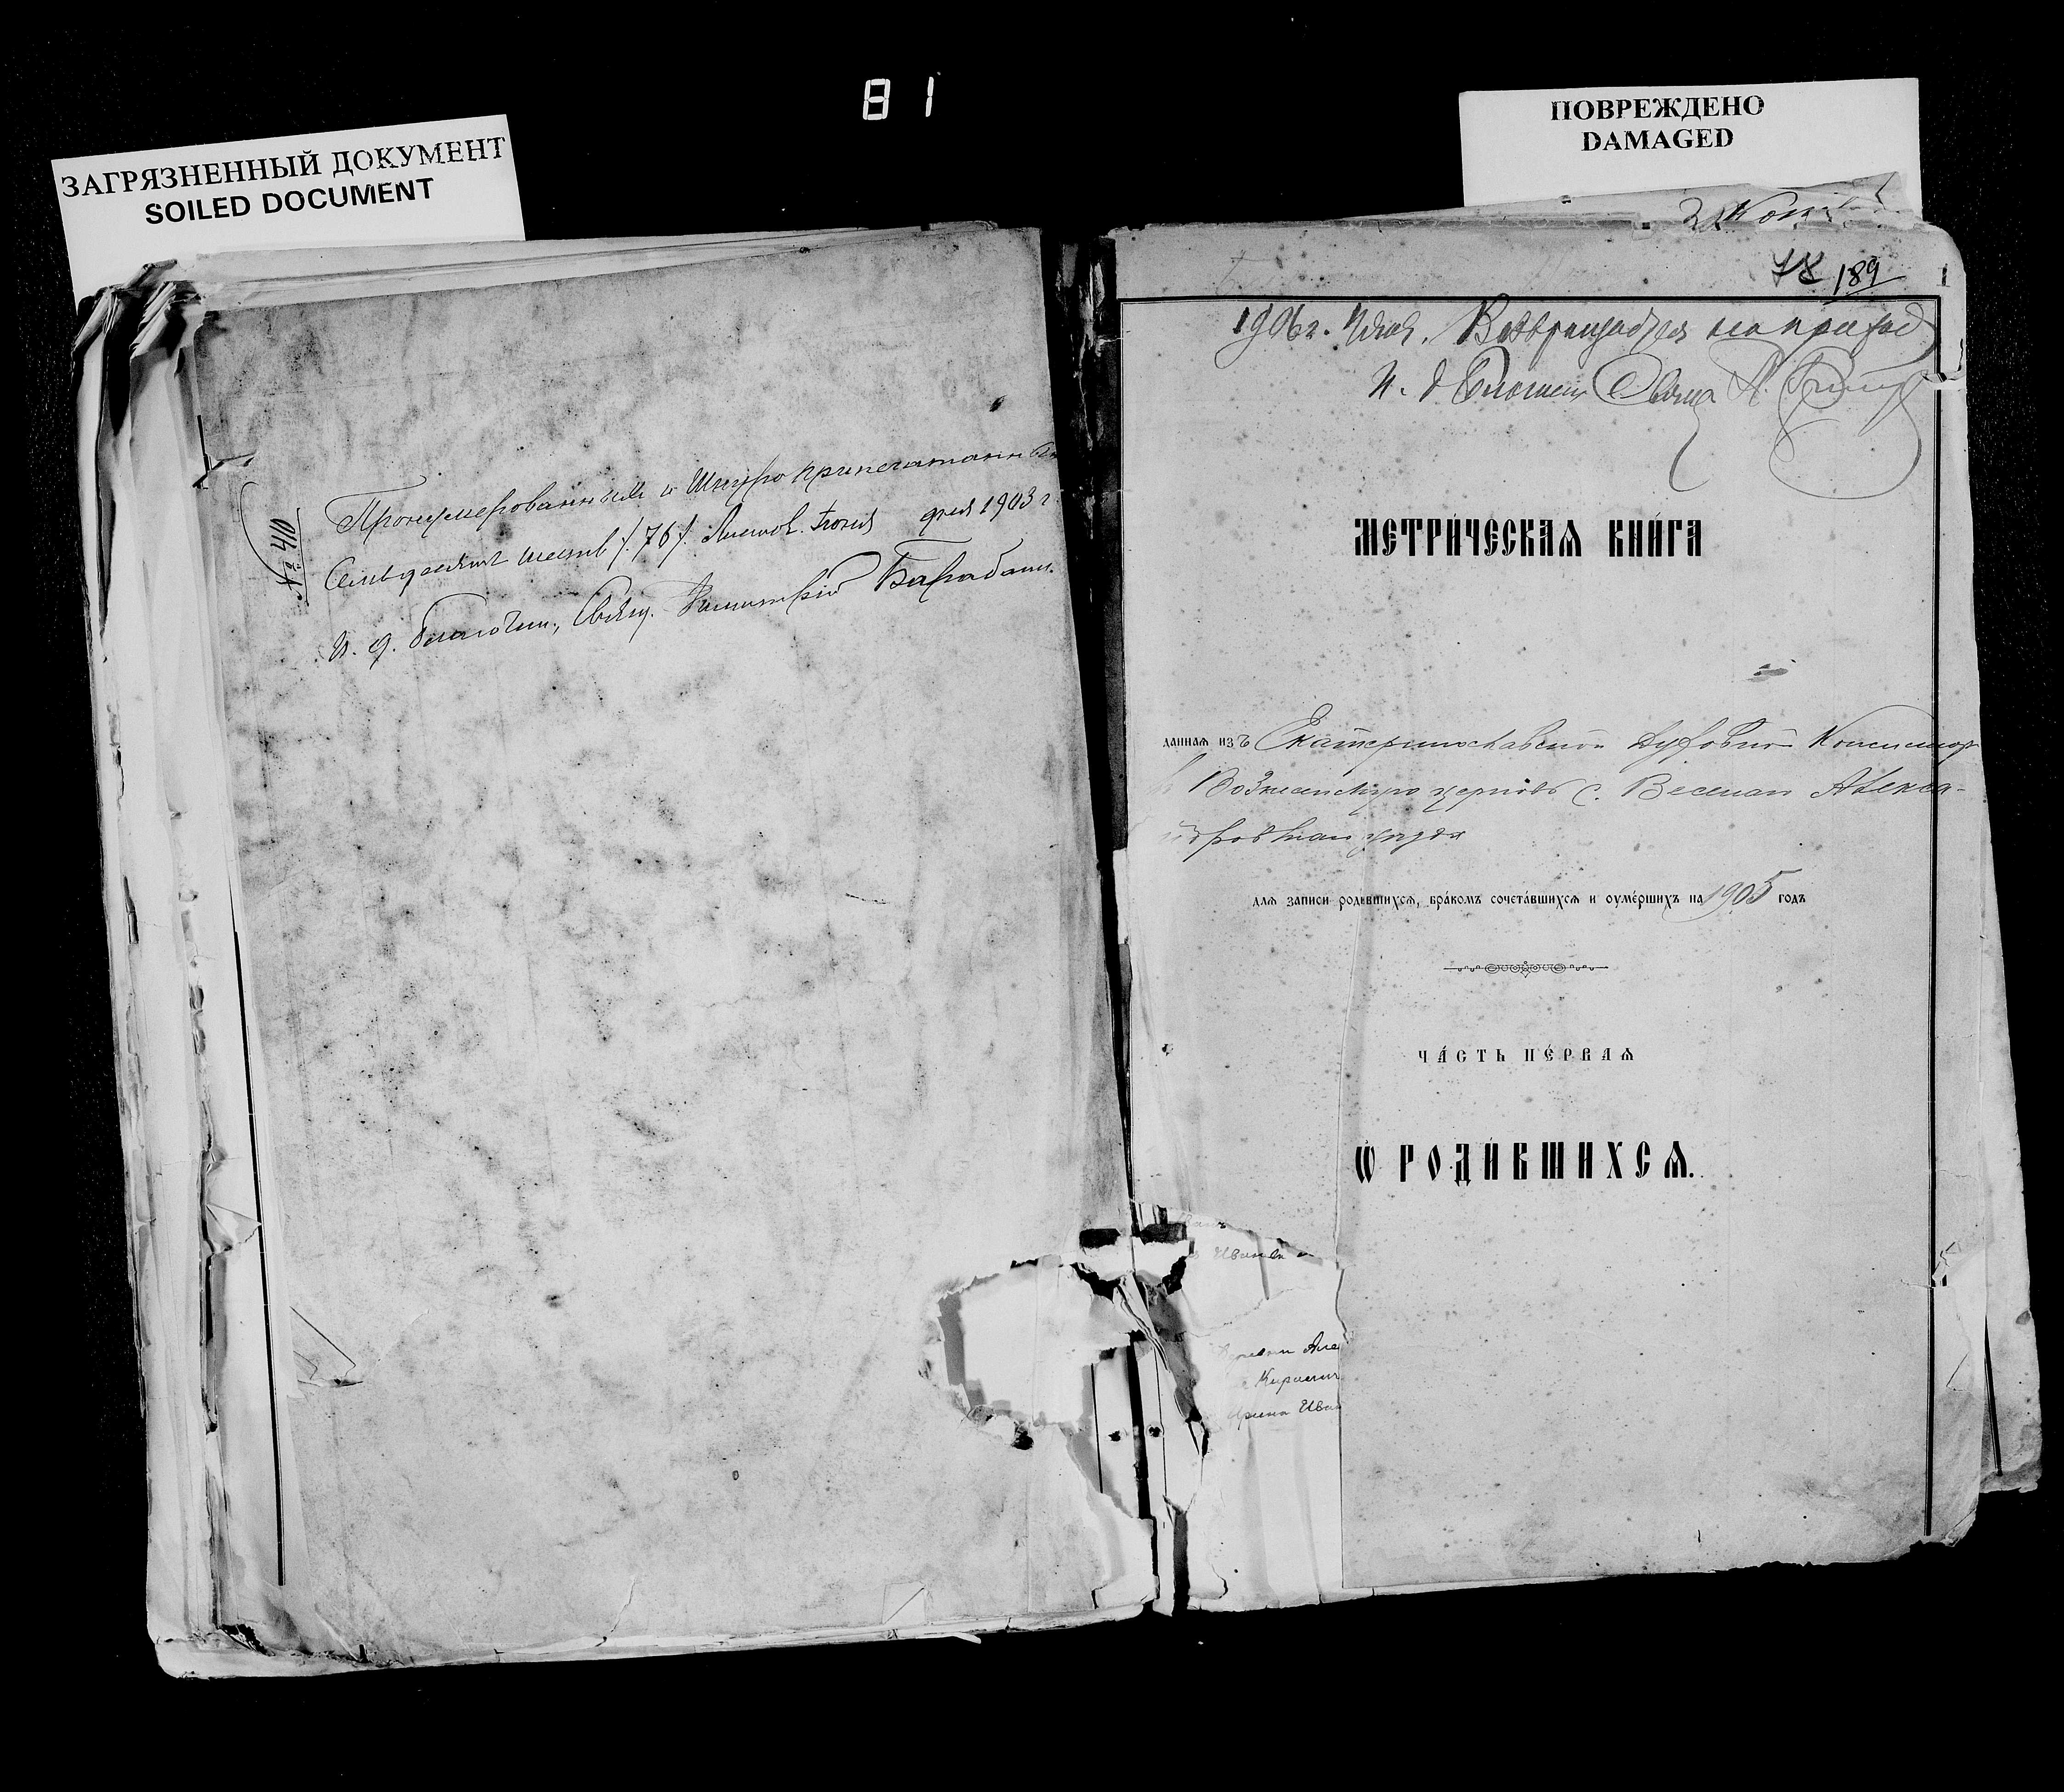 81
ЗАГРЯЗНЕННЫЙ ДОКУМЕНТ
SOILED DOCUMENT
ПОВРЕЖДЕНО
DAMAGED
№ 410
Пронумерованныхъ и Шнуро припечатанны
Семьдесятъ шесть /76/ Листов. Іюня дня 1903 г.
И. д. благочин., Свящ. Димитрій Барабаш.
78 189
1
1906 г. Возвращается на приход
И. д.
МЕТРИ́ЧЕСКАѦ КНИ́ГА
даннаѧ изъ Екатеринославской Духовной Консистор
Вознесенскую церковь с. Веселаго Алекса-
дровскаго уѣзда
длѧ записи роди́вшихсѧ, бра́комъ сочета́вшихсѧ и оуме́ршихъ на 1905 годъ
ЧА́СТЬ ПЕ́РВАѦ
Ѡ҆ РОДИ́ВШИХСѦ.
Иванов
Кирилл
Ирина Иван